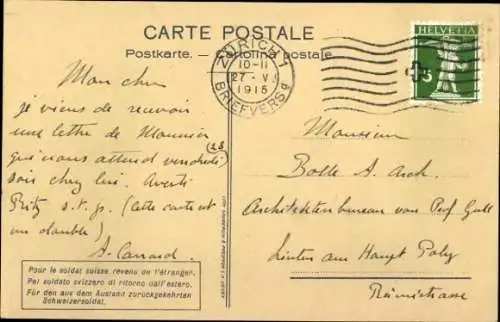 CARTE POSTALE
Postkarte. — Cartolina postale.
ZÜRICH 1
10-11
27·V
1915
BRIEFVERS
HELVETIA
5
Mon cher
je viens de recevoir
une lettre de Monnier
qui nous attend vendredi (28)
soir chez lui. Averti
Fritz s.v.p. (cette carte est
un double)
A.
Pour le soldat suisse revenu de l'étranger.
Pel soldato svizzero di ritorno dall'estero.
Für den aus dem Ausland zurückgekehrten
Schweizersoldat.
Monsieur
Bolle A. Arch.
Architektenbureau von Prof Gull
Hinten am Haupt Poly
Rämistrasse